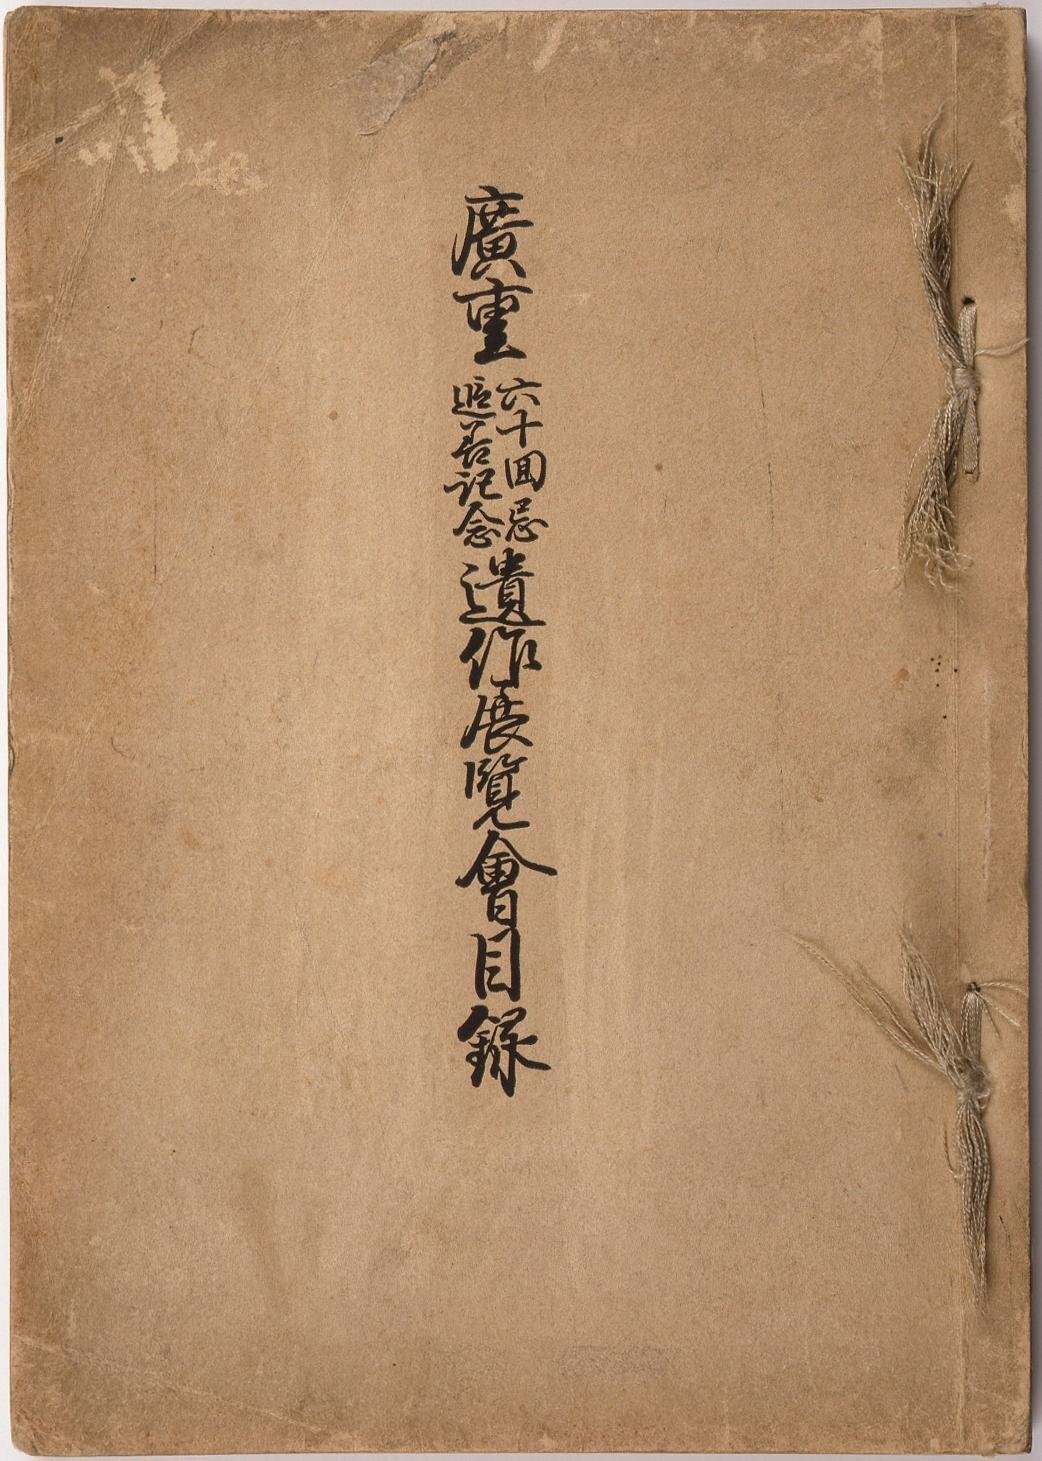 廣重
六十囘忌
追善記念
遺作展覽會目錄